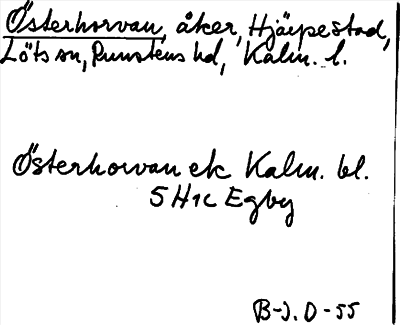 Österhorvan, åker, Hjäpestad,
Löts sn, Runstens hd, Kalm. l.
Österhorvan ek Kalm. bl.
5H1c Egby
B-J. D-55